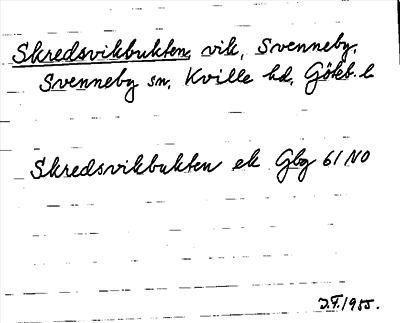 Skredsvikbukten, vik, Svenneby,
Svenneby sn, Kville hd, Göteb. l.
Skredsvikbukten ek Gbg 61 NO
J.F. 1955.